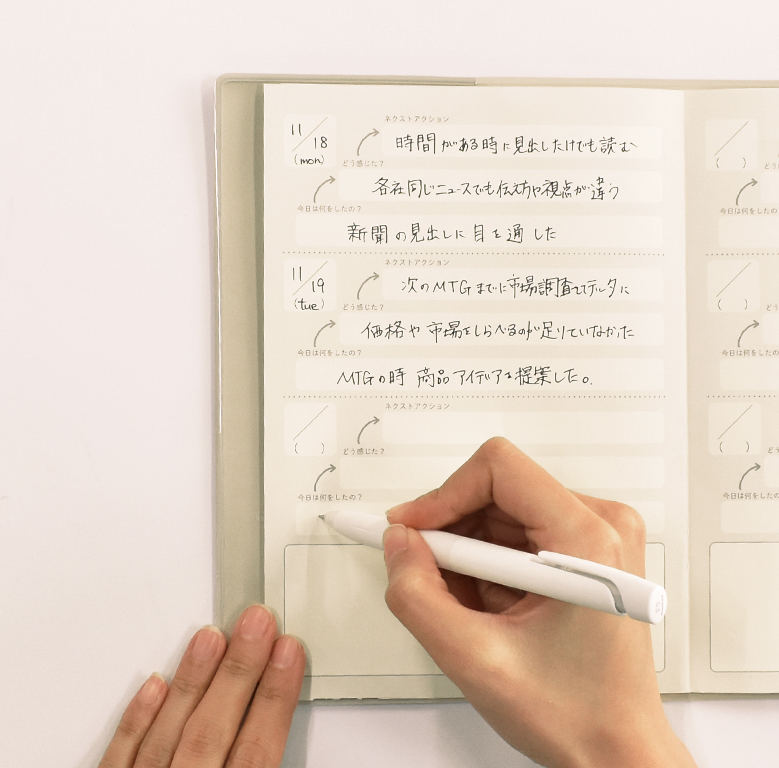 ネクストアクション
11/18
(mon)
時間がある時に見出しだけでも読む
どう感じた?
各社同じニュースでも伝え方や視点が違う
今日は何をしたの?
新聞の見出しに目を通した
ネクストアクション
11/19
(tue)
次のMTGまでに市場調査してデータに
どう感じた?
価格や市場をしらべるのが足りていなかった
今日は何をしたの?
MTGの時 商品アイデアを提案した。
ネクストアクション
/
( )
どう感じた?
今日は何をしたの?
/
( )
今日は何をしたの?
/
( )
今日は何をしたの?
/
( )
今日は何をしたの?